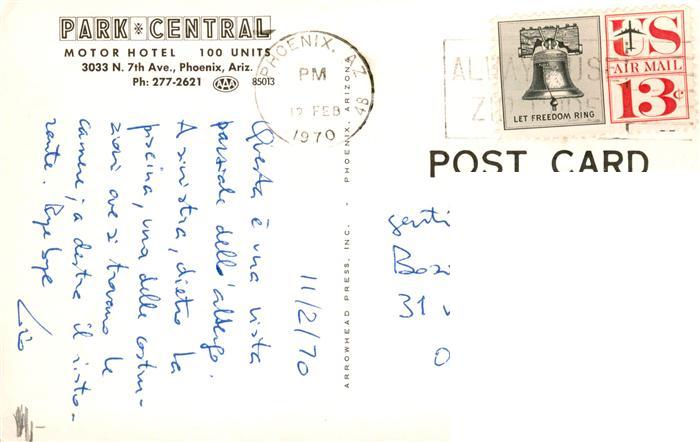 PARK CENTRAL
MOTOR HOTEL 100 UNITS
3033 N. 7th Ave., Phoenix, Ariz.
Ph: 277-2621 AAA 85013
PHOENIX, AZ
PM
12 FEB
1970
US
AIR MAIL
13¢
LET FREEDOM RING
POST CARD
ARROWHEAD PRESS, INC. - PHOENIX, ARIZONA
11/2/70
Questa è una vista
parziale dell'albergo.
A sinistra, dietro la
piscina, una delle costru-
zioni ove si trovano le
camere; a destra il risto-
rante. Bye bye
genti
31